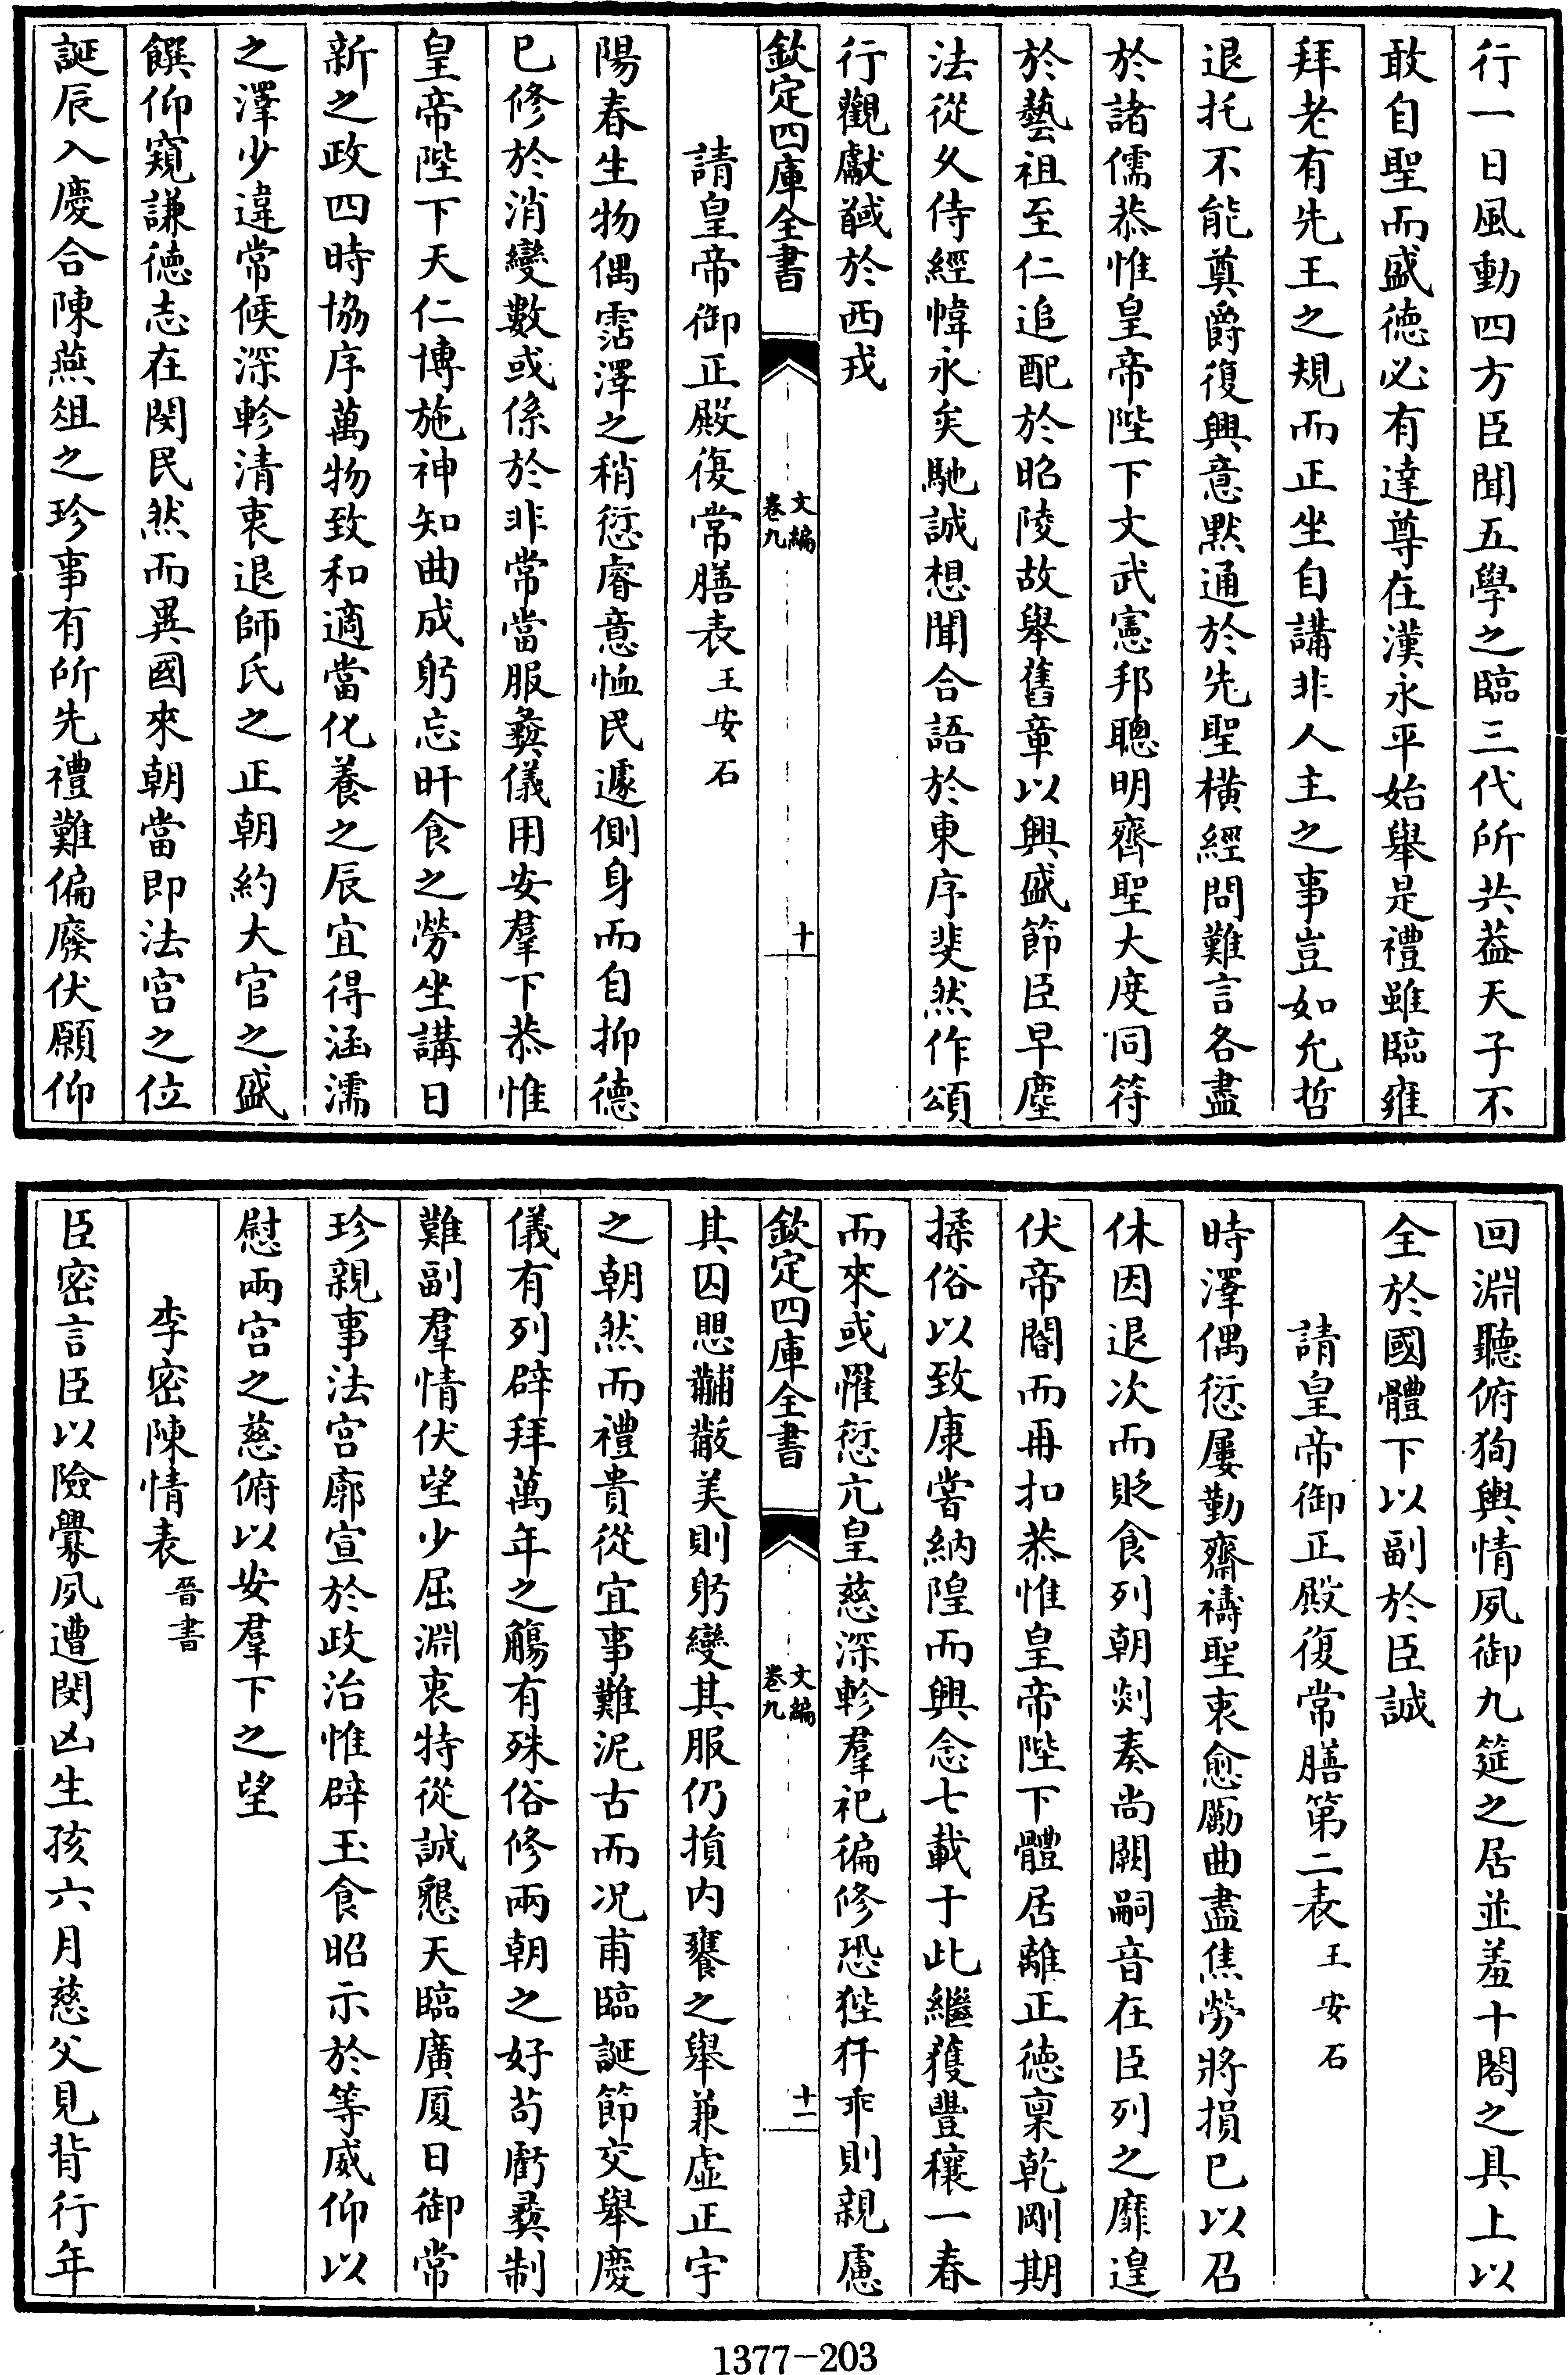 行一日風動四方臣聞五學之臨三代所共葢天子不
敢自聖而盛徳必有達尊在漢永平始舉是禮雖臨雍
拜老有先王之規而正坐自講非人主之事豈如允哲
退托不能奠爵復興意黙通於先聖横經問難言各盡
於諸儒恭惟皇帝陛下文武憲邦聰明齊聖大度同符
於藝祖至仁追配於昭陵故舉舊章以興盛節臣早塵
法從乆侍經幃永矣馳誠想聞合語於東序斐然作頌
行觀獻馘於西戎
欽定四庫全書
文編
卷九
十
請皇帝御正殿復常膳表王安石
陽春生物偶霑澤之稍愆睿意恤民遽側身而自抑德
已修於消變數或係於非常當服彜儀用安羣下恭惟
皇帝陛下天仁博施神知曲成躬忘旰食之勞坐講日
新之政四時協序萬物致和適當化養之辰宜得涵濡
之澤少違常候深軫清衷退師氏之正朝約大官之盛
饌仰窺謙徳志在閔民然而異國來朝當即法宫之位
誕辰入慶合陳燕俎之珍事有所先禮難偏廢伏願仰
回淵聽俯狥輿情夙御九筵之居並羞十閣之具上以
全於國體下以副於臣誠
請皇帝御正殿復常膳第二表王安石
時澤偶愆屢勤齋禱聖衷愈勵曲盡焦勞將損已以召
休因退次而貶食列朝剡奏尚闕嗣音在臣列之靡遑
伏帝閽而再扣恭惟皇帝陛下體居離正徳稟乾剛期
揉俗以致康嘗納隍而興念七載于此繼獲豐穰一春
而來或罹愆亢皇慈深軫羣祀徧修恐狴犴乖則親慮
欽定四庫全書
文編
卷九
十一
其囚愳黼黻美則躬變其服仍損内饔之舉兼虚正宇
之朝然而禮貴從宜事難泥古而况甫臨誕節交舉慶
儀有列辟拜萬年之觴有殊俗修兩朝之好茍虧彜制
難副羣情伏望少屈淵衷特從誠懇天臨廣厦日御常
珍親事法宫廓宣於政治惟辟玉食昭示於等威仰以
慰兩宫之慈俯以安羣下之望
李密陳情表晉書
臣密言臣以險釁夙遭閔凶生孩六月慈父見背行年
1377-203